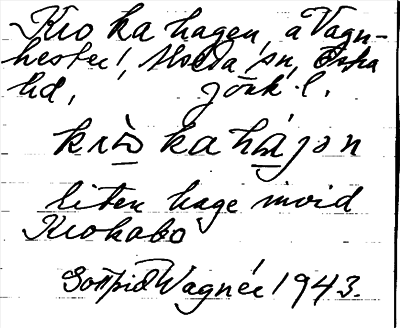 Krokahagen, å Vagn-
hester, Moeda sn, Östra
hd, Jönk. l.
krò̱kahá̱jən
liten hage invid
Krokabo
Gottfrid Wagnér 1943.